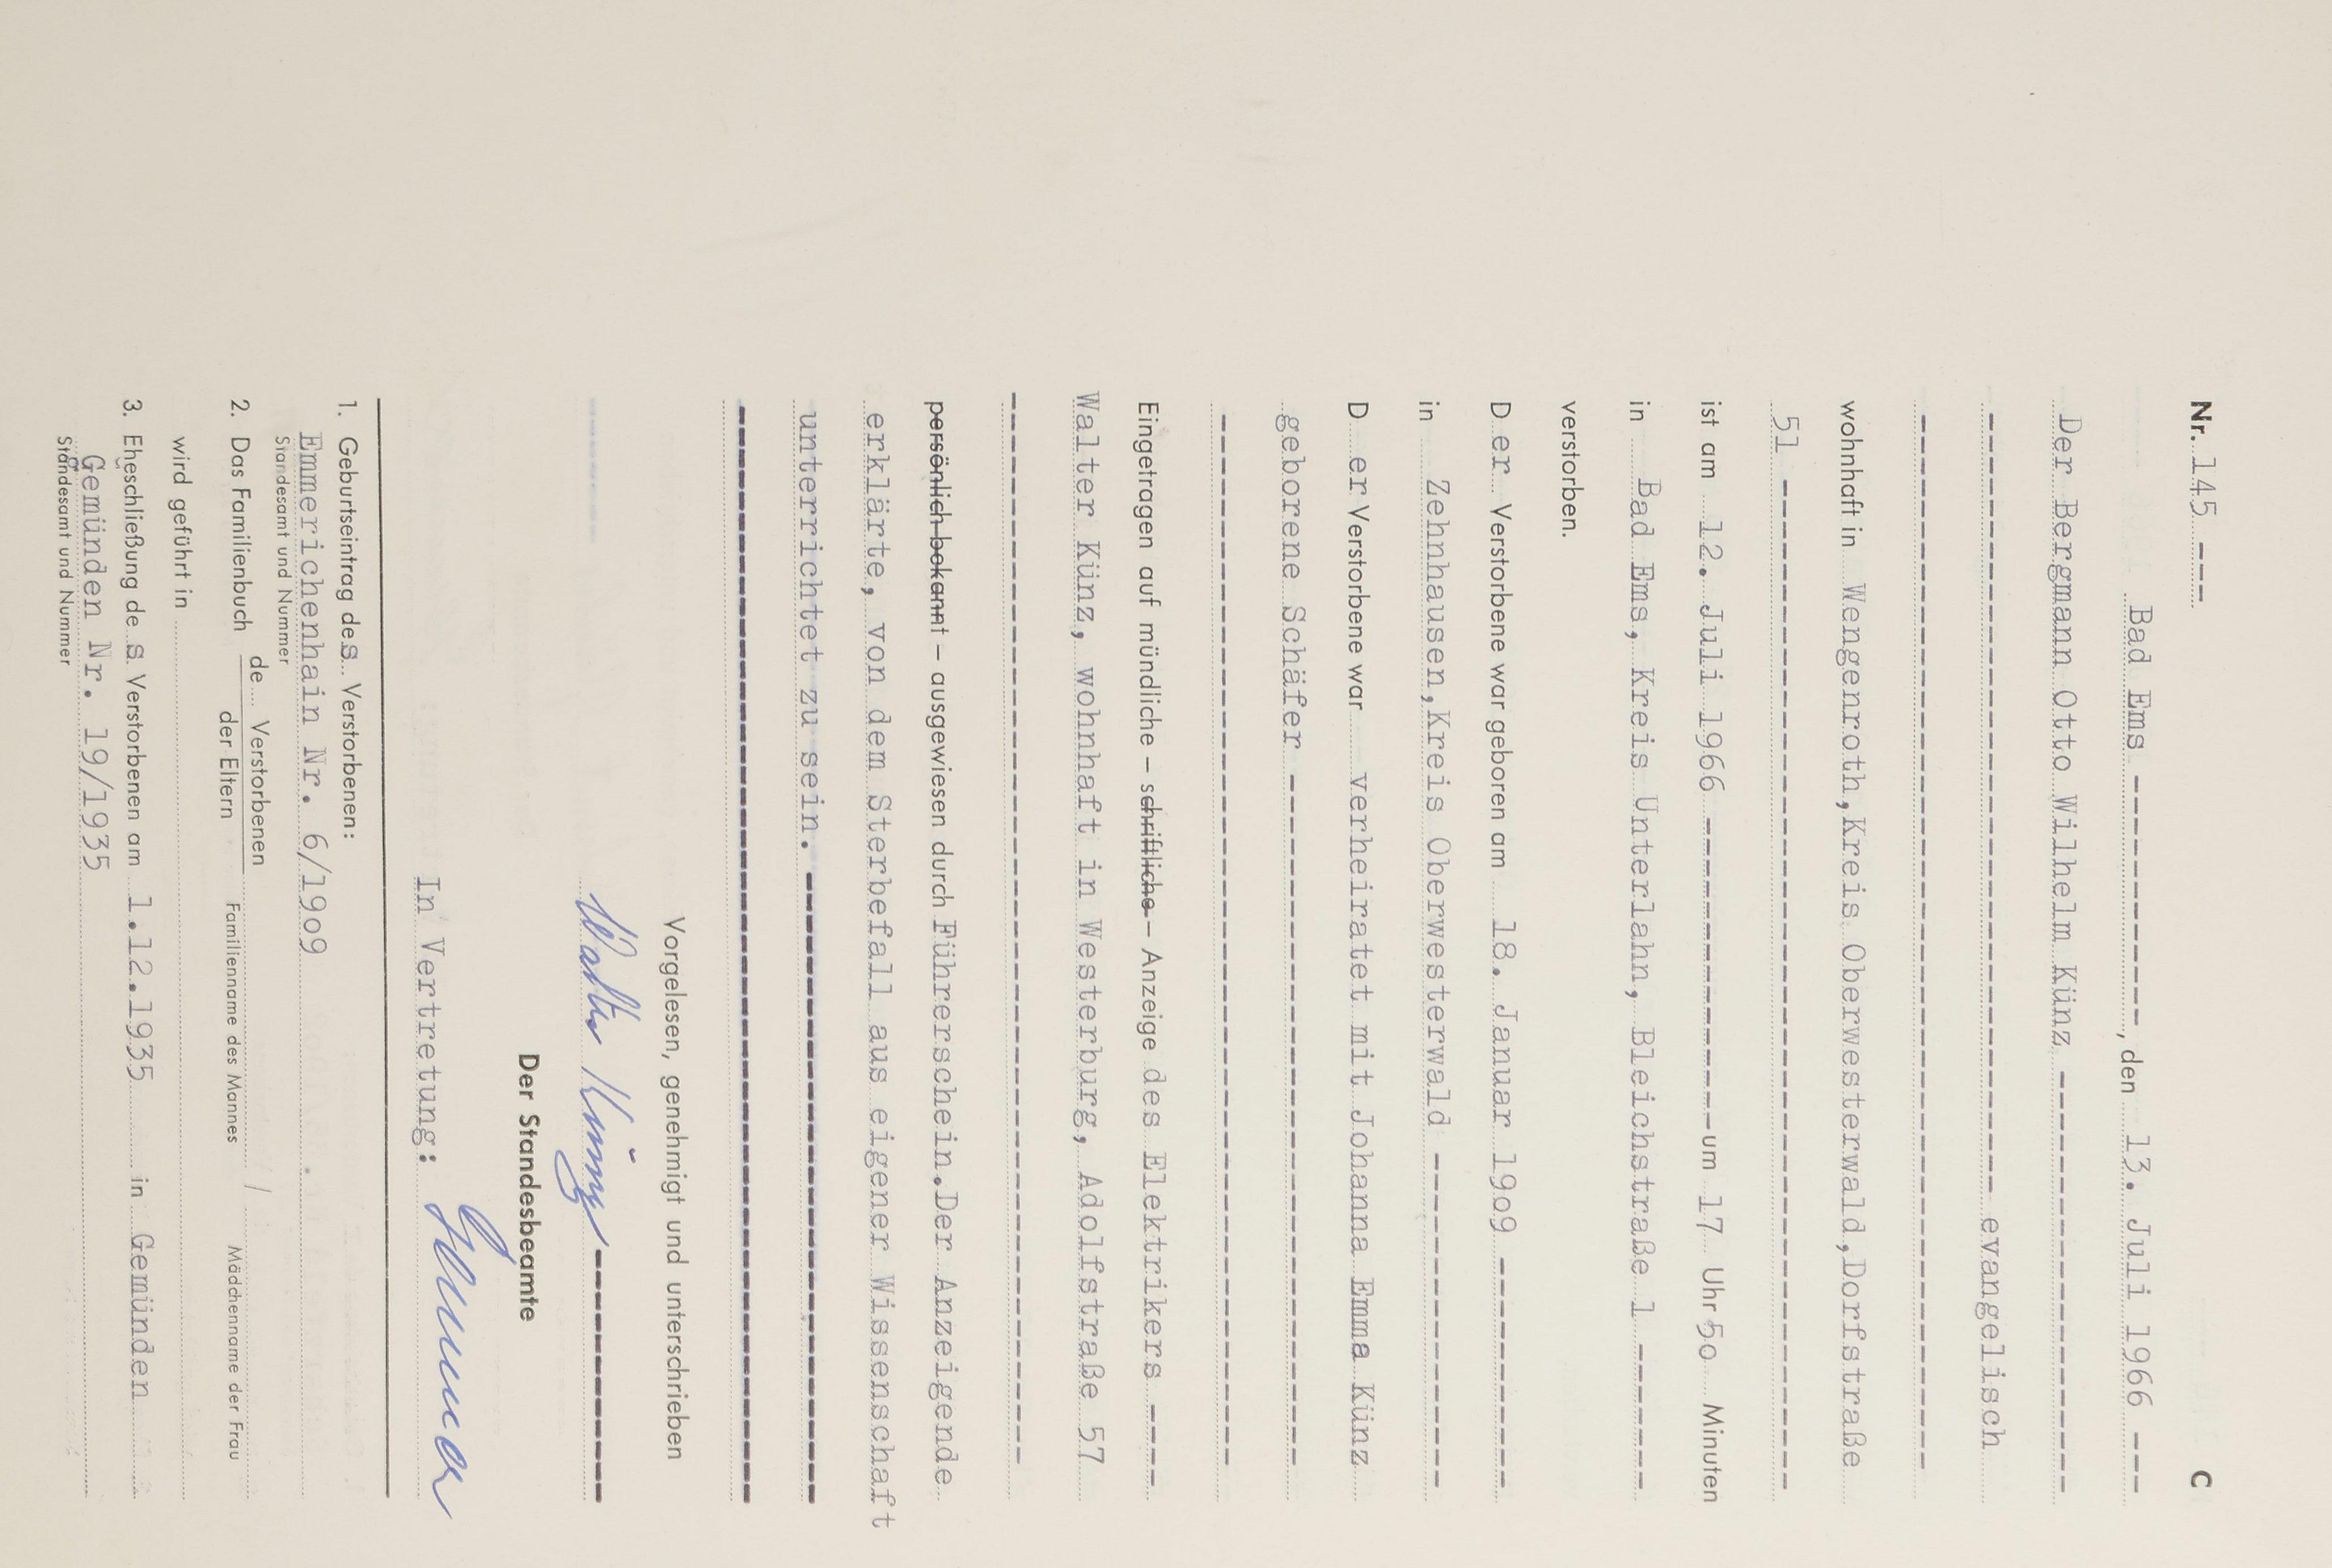 Nr. 145 --- C
Bad Ems ------------, den 13. Juli 1966 ---
Der Bergmann Otto Wilhelm Künz --------------------
------------------------------------ evangelisch
--------------------------------------------------
wohnhaft in Wengenroth,Kreis Oberwesterwald,Dorfstraße
51 -----------------------------------------------
ist am 12. Juli 1966 ---------------um 17 Uhr 50 Minuten
in Bad Ems, Kreis Unterlahn, Bleichstraße 1 -------
verstorben.
D er Verstorbene war geboren am 18. Januar 1909 -----------
in Zehnhausen,Kreis Oberwesterwald ----------------
D er Verstorbene war verheiratet mit Johanna Emma Künz
geborene Schäfer ---------------------------------
--------------------------------------------------
Eingetragen auf mündliche – schriftliche – Anzeige des Elektrikers ----
Walter Künz, wohnhaft in Westerburg, Adolfstraße 57
--------------------------------------------------
persönlich bekannt – ausgewiesen durch Führerschein.Der Anzeigende
erklärte, von dem Sterbefall aus eigener Wissenschaft
unterrichtet zu sein. ------------------------------
--------------------------------------------------
Vorgelesen, genehmigt und unterschrieben
Walter Künz ------------
Der Standesbeamte
In Vertretung:
1. Geburtseintrag des Verstorbenen:
Emmerichenhain Nr. 6/1909
Standesamt und Nummer
2. Das Familienbuch de Verstorbenen / der Eltern
Familienname des Mannes Mädchenname der Frau
wird geführt in
3. Eheschließung de s Verstorbenen am 1.12.1935 in Gemünden
Gemünden Nr. 19/1935
Standesamt und Nummer